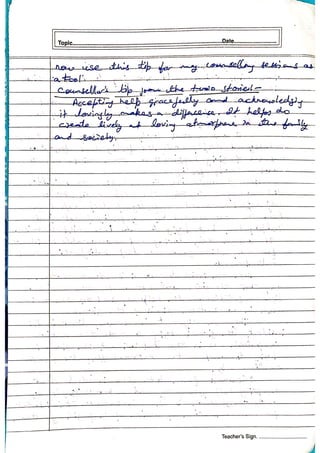 Topic Date
now use this tip for my counselling sessions as
a tool.
Counsellor's tip from the two stories:-
Accepting help gracefully and acknowledging
it lovingly makes a difference. It helps to
create lively and loving atmosphere in the family
and society.
Teacher's Sign.